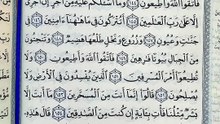 فَاتَّقُوا۟ اللَّهَ وَأَطِيعُونِ ١٤٤ وَمَآ أَسْـَٔلُكُمْ عَلَيْهِ مِنْ أَجْرٍ إِنْ أَجْرِىَ
إِلَّا عَلَىٰ رَبِّ ٱلْعَٰلَمِينَ ١٤٥ أَتُتْرَكُونَ فِى مَا هَٰهُنَآ ءَامِنِينَ ١٤٦ فِى
جَنَّٰتٍ وَعُيُونٍ ١٤٧ وَزُرُوعٍ وَنَخْلٍ طَلْعُهَا هَضِيمٌ ١٤٨ وَتَنْحِتُونَ
مِنَ ٱلْجِبَالِ بُيُوتًا فَٰرِهِينَ ١٤٩ فَٱتَّقُوا۟ ٱللَّهَ وَأَطِيعُونِ ١٥٠ وَلَا
تُطِيعُوٓا۟ أَمْرَ ٱلْمُسْرِفِينَ ١٥١ ٱلَّذِينَ يُفْسِدُونَ فِى ٱلْأَرْضِ وَلَا
يُصْلِحُونَ ١٥٢ قَالُوٓا۟ إِنَّمَآ أَنتَ مِنَ ٱلْمُسَحَّرِينَ ١٥٣ مَآ أَنتَ إِلَّا
بَشَرٌ مِّثْلُنَا فَأْتِ بِـَٔايَةٍ إِن كُنتَ مِنَ ٱلصَّٰدِقِينَ ١٥٤ قَالَ هَٰذِهِۦ